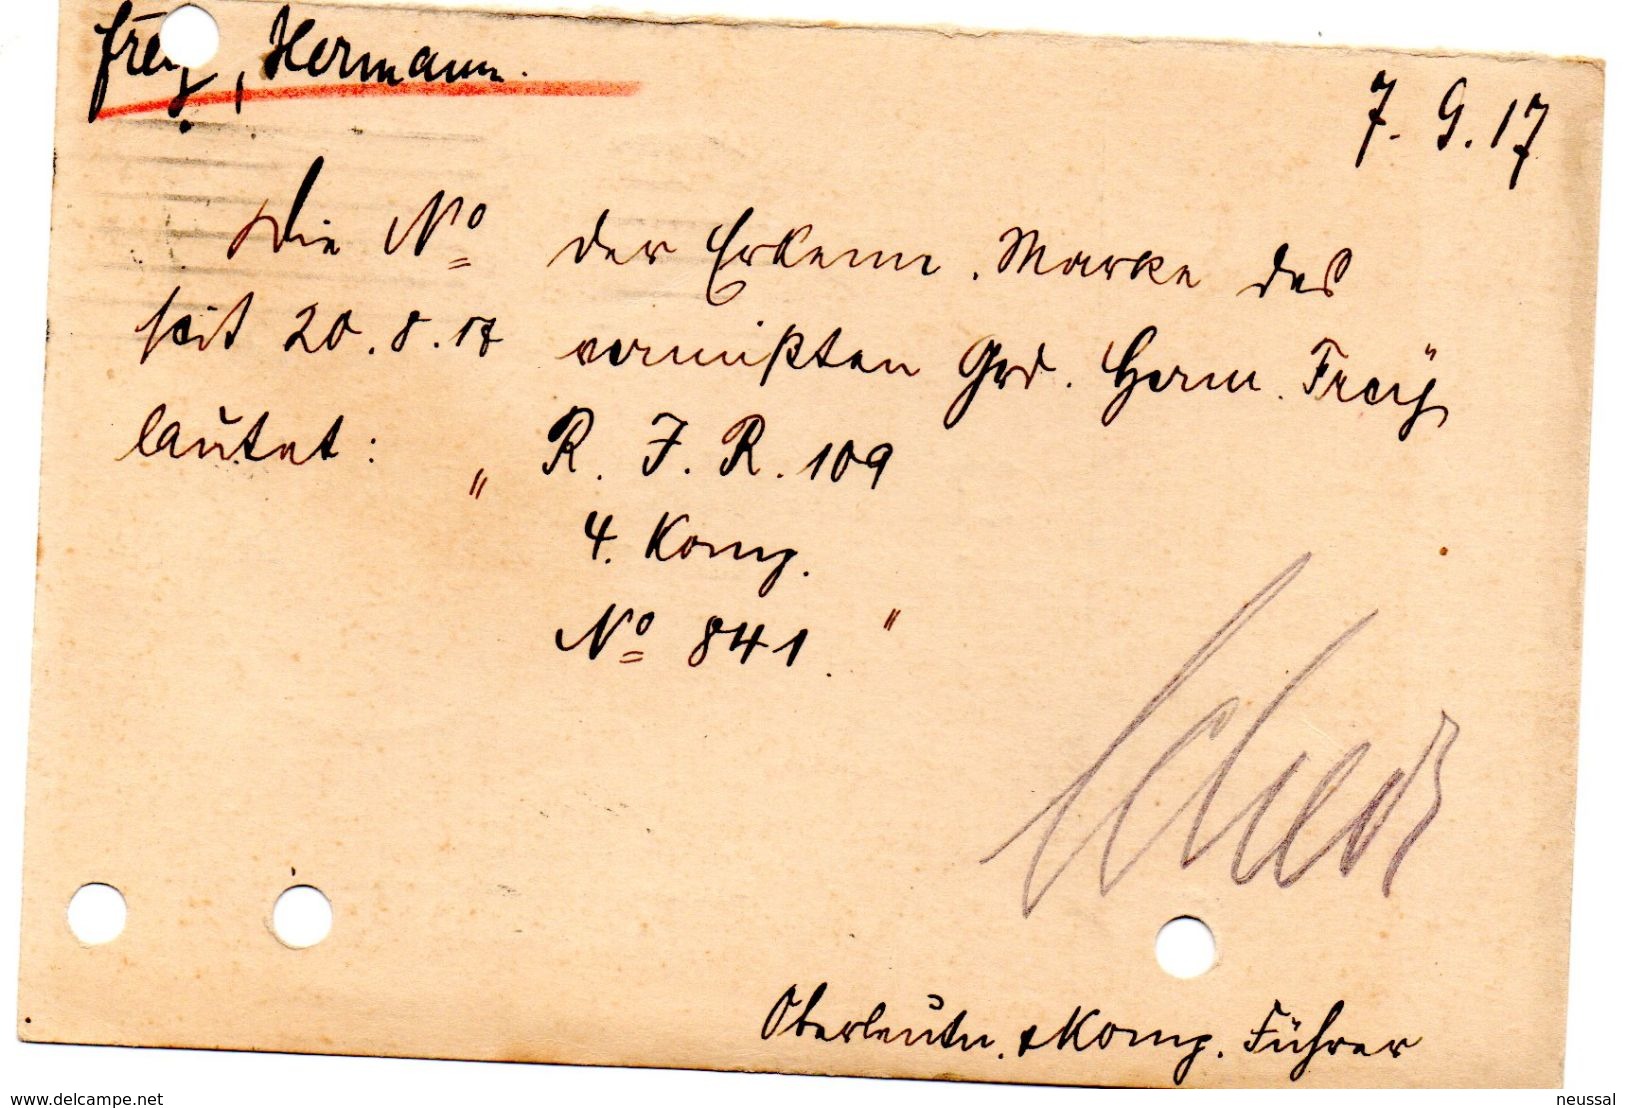 Freÿ, Hermann.
7. 9. 17
Die Nº der Erkenn. Marke des
seit 20. 8. 17 vermißten Grd. Herm. Freÿ
lautet: „ R. I. R. 109
4. Komp.
Nº 841. "
Oberleutn. & Komp. Führer
www.delcampe.net
neussal